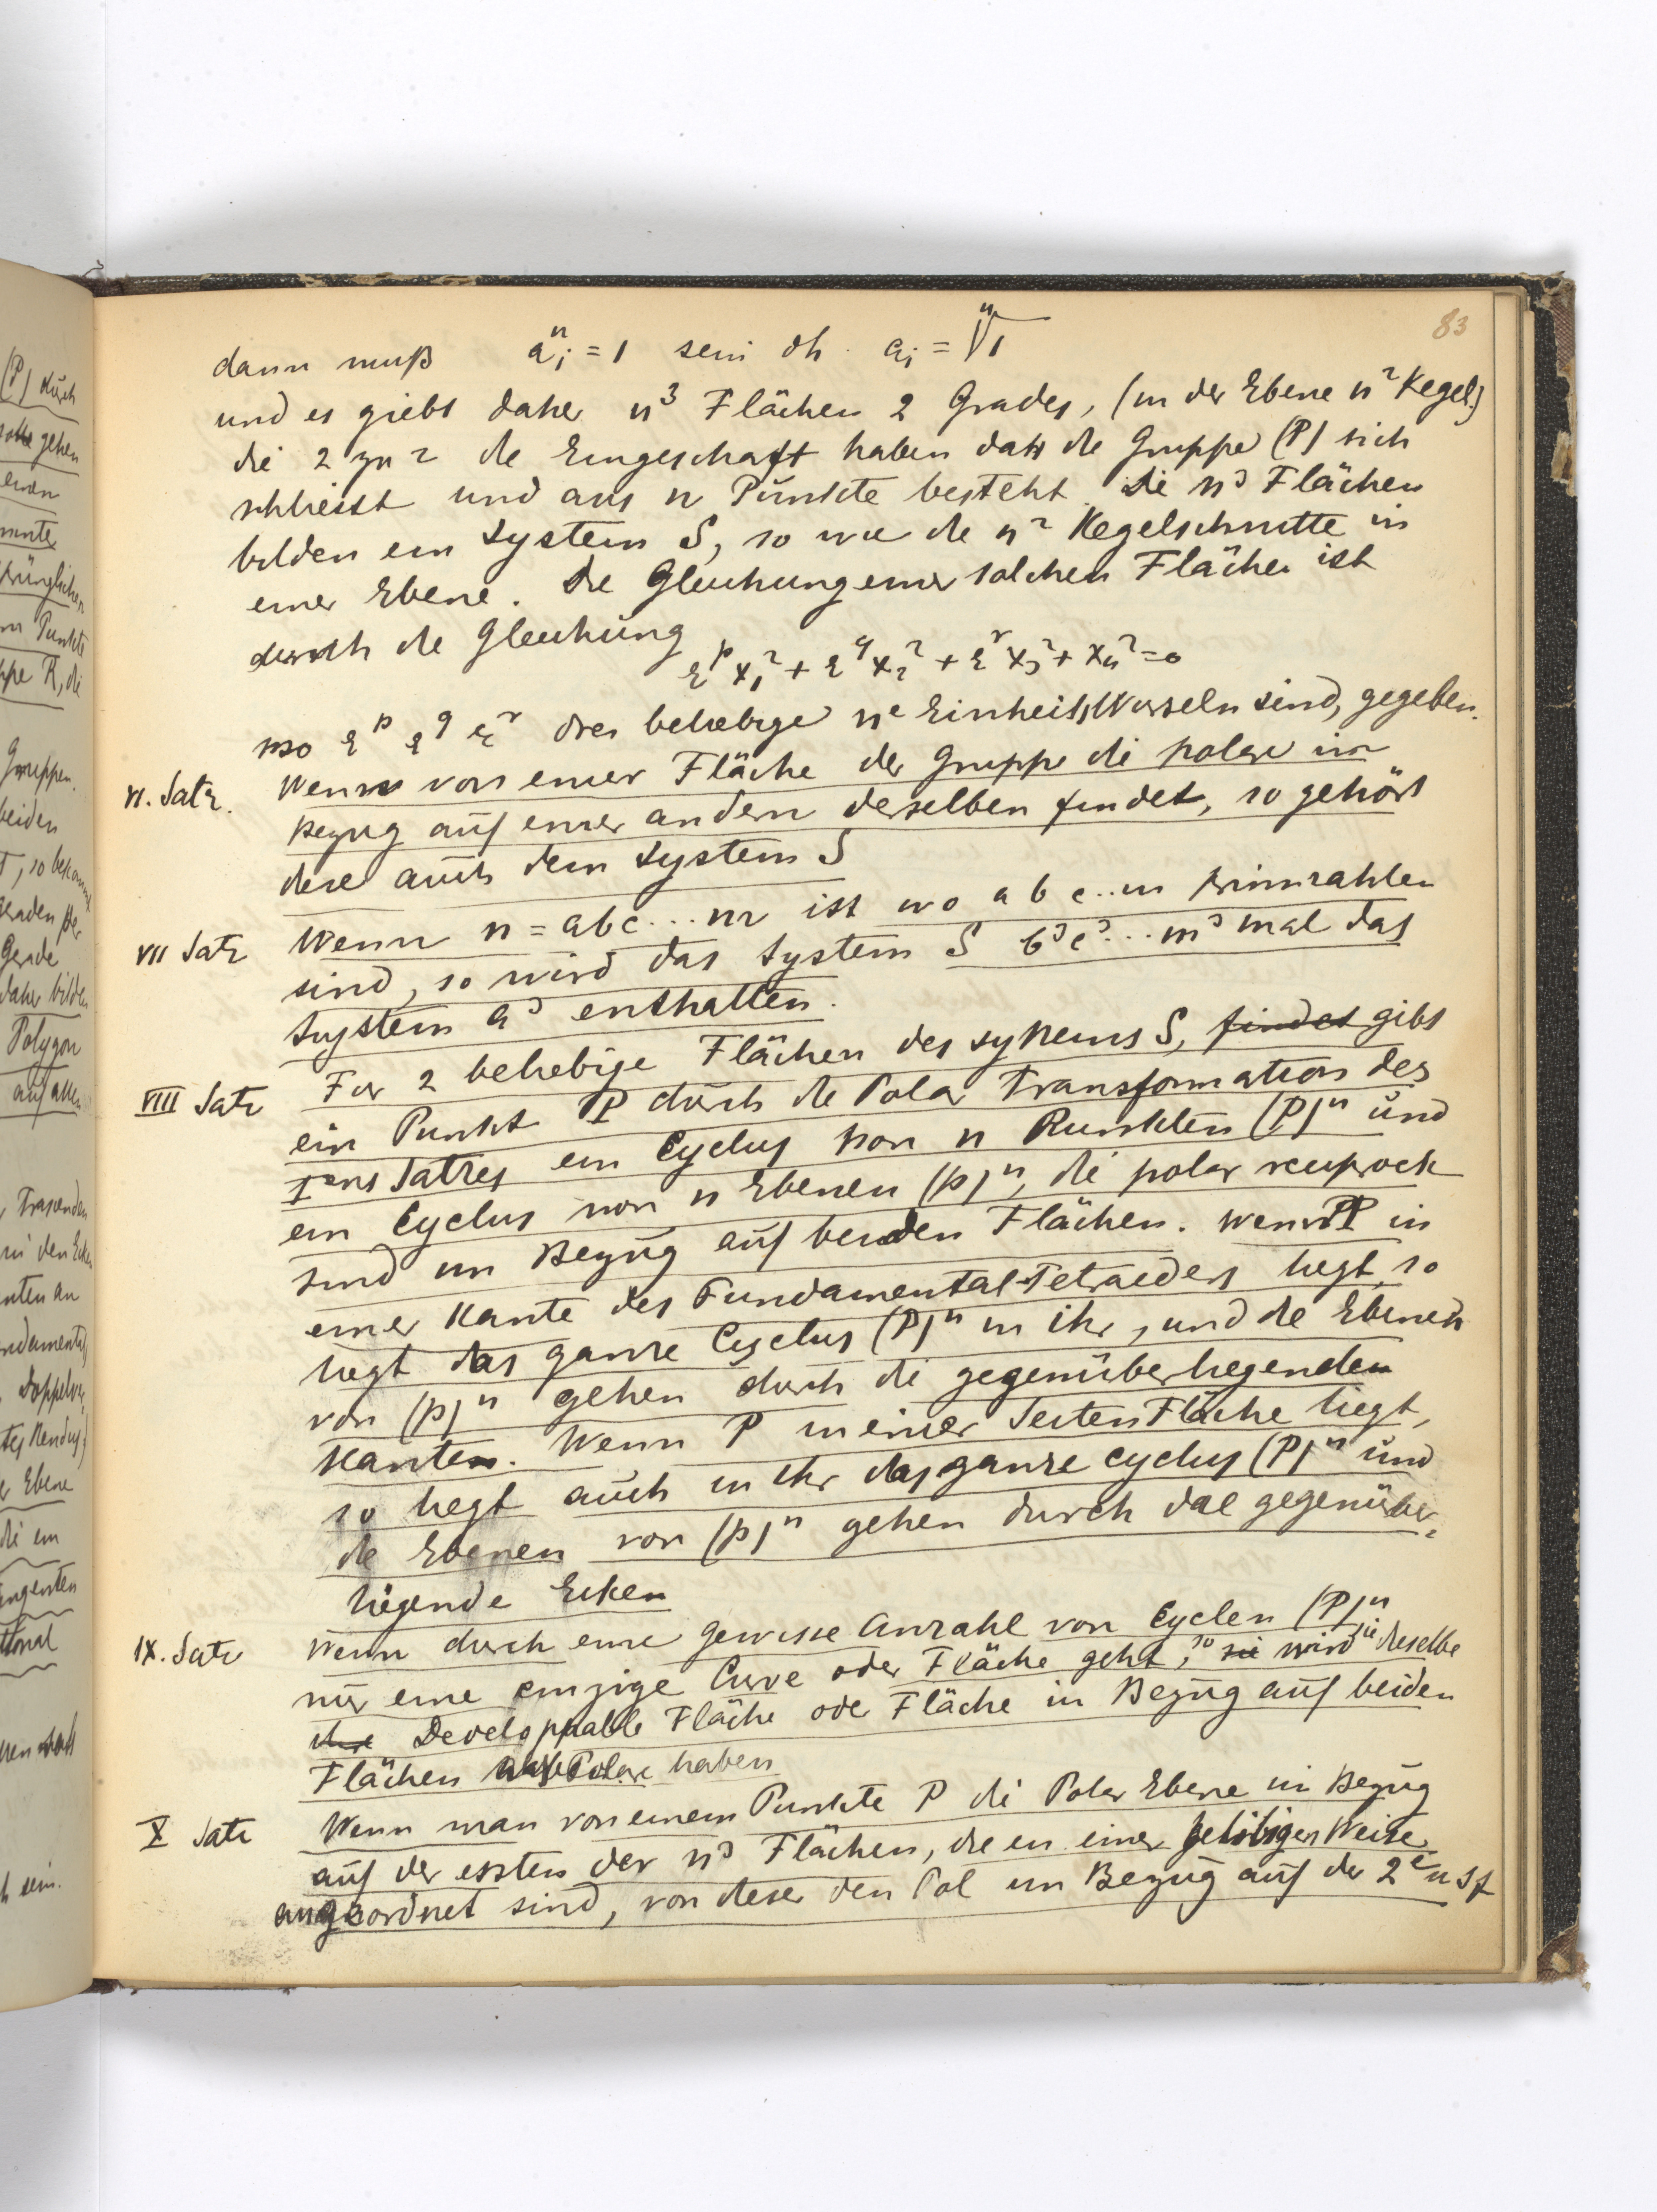 83
dann muß a_i^n = 1 sein dh. a_i = \sqrt[n]{1}
und es giebt daher n^3 Flächen 2 Grades, (in der Ebene n^2 Kegel.)
die 2 zu 2 die Eingeschaft haben dass die Gruppe (P) sich
schliesst und aus n Punkte besteht. Die n^3 Flächen
bilden ein System S, so wie die n^2 Kegelschnitte in
einer Ebene. Die Gleichung einer solchen Fläche ist
durch die Gleichung
ε^p x_1^2 + ε^q x_2^2 + ε^r x_3^2 + x_4^2 = 0
wo ε^p ε^q ε^r drei beliebige n^e Einheitswurzeln sind, gegeben.
VI. Satz. Wenn von einer Fläche der Gruppe die polare in
Bezug auf einer andern derselben findet, so gehört
diese auch dem System S
VII Satz Wenn n = abc...m ist wo a b c..m Primzahlen
sind, so wird das System S b^3c^3...m^3 mal das
System a^3 enthalten.
VIII Satz Für 2 beliebige Flächen des Systems S, findet gibt
ein Punkt P durch die Polar Transformation des
I^ens Satzes ein Cyclus von n Punkten (P)^n und
ein Cyclus von n Ebenen (p)^n, die polar reciprock
sind im Bezug auf beiden Flächen. Wenn P in
einer Kante des Fundamental-Tetraeders liegt, so
liegt das ganze Cyclus (P)^n in ihr, und die Ebenen
von (p)^n gehen durch die gegenüberliegenden
Kanten. Wenn P in einer Seiten Fläche liegt,
so liegt auch in ihr das ganze cyclus (P)^n und
die Ebenen von (p)^n gehen durch die gegenüber-
liegende Ecken
IX. Satz Wenn durch eine gewisse Anzahl von Cyclen (P)^n
nur eine einzige Curve oder Fläche geht, so sie wird sie dieselbe
ihre Developpable Fläche oder Fläche in Bezug auf beiden
Flächen als Polare haben
X Satz Wenn man von einem Punkte P die Polar Ebene in Bezug
auf der ersten der n^3 Flächen, die in einer beliebigen Weise
angeordnet sind, von dieser den Pol im Bezug auf der 2^e u s f